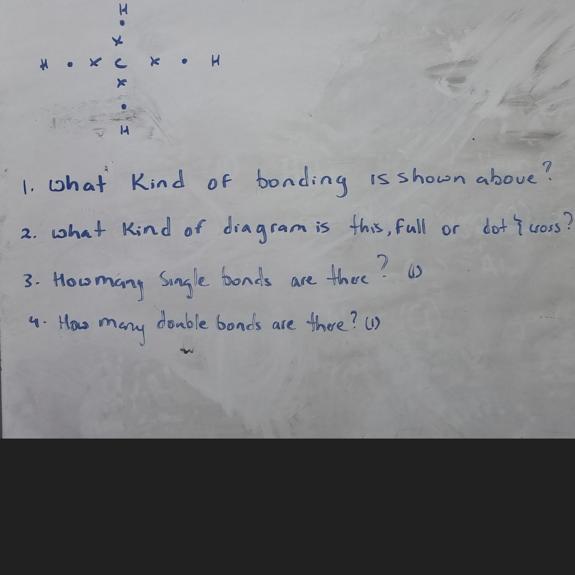 H
•
x
H • x C x • H
x
•
H
1. What Kind of bonding is shown above?
2. What Kind of diagram is this, full or dot & cross?
3. How many Single bonds are there? (1)
4. How many double bonds are there? (1)